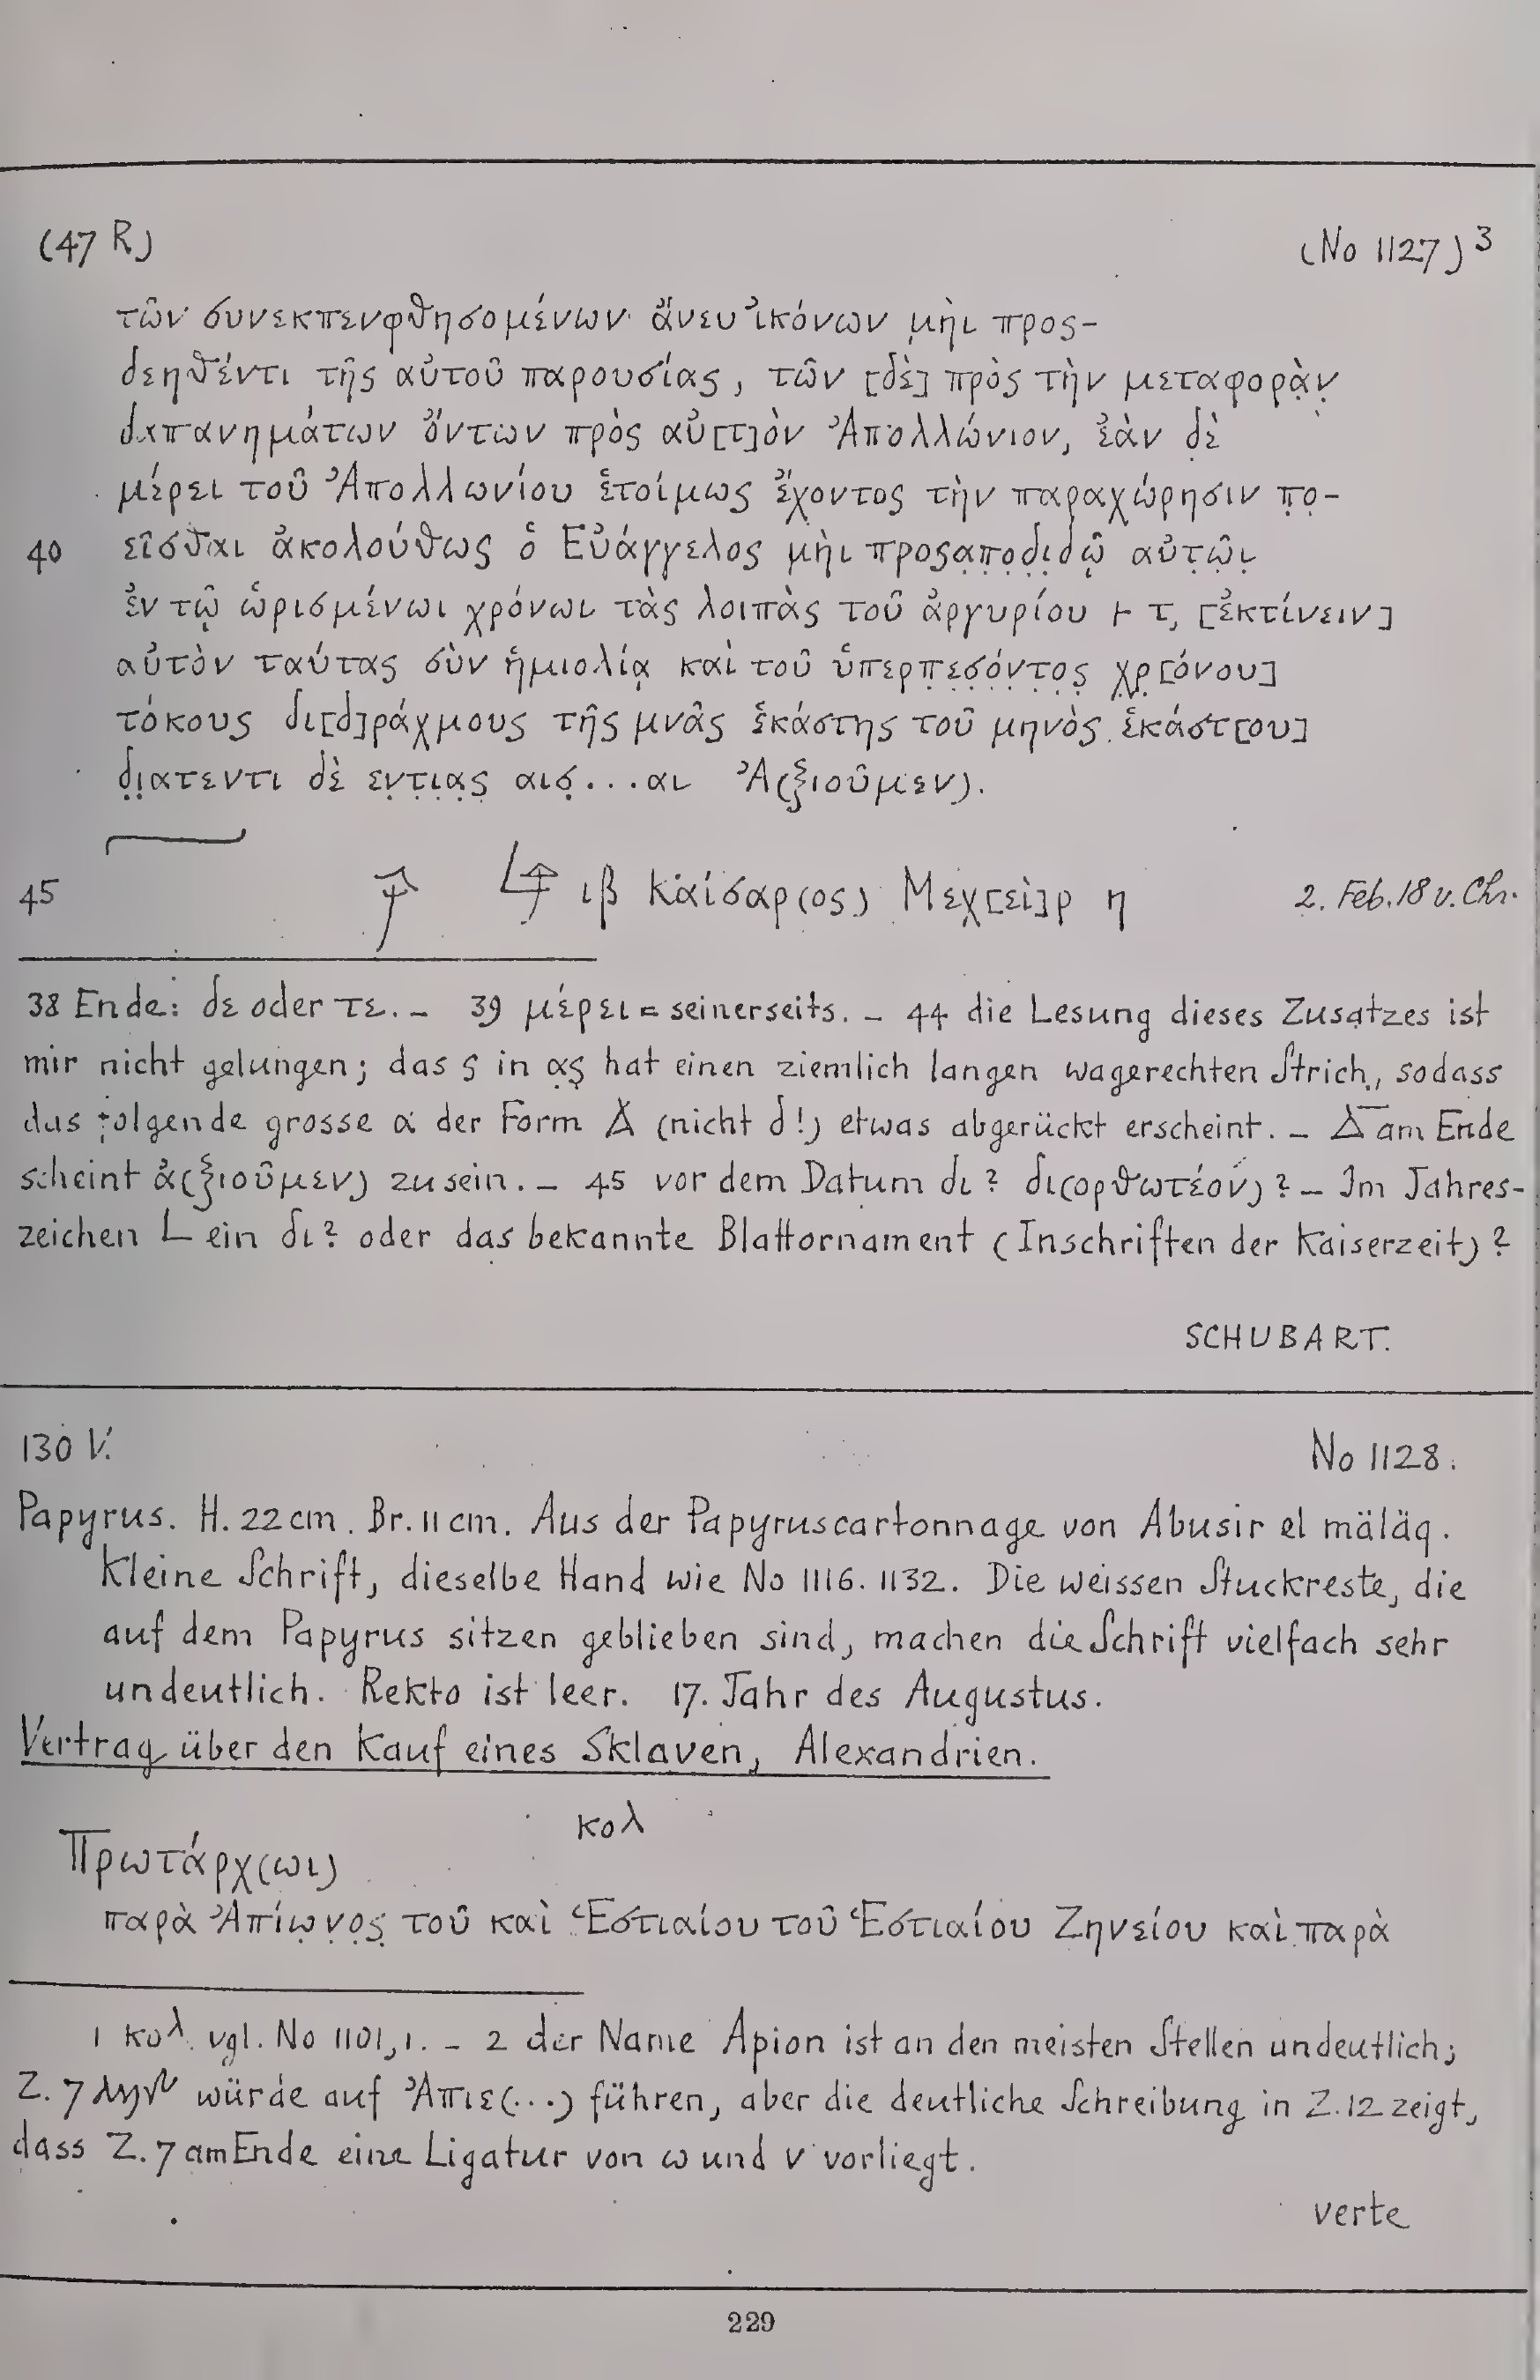 (47 R)
(No 1127) 3
τῶν συνεκπενφθησομένων ἄνευ ἰκόνων μὴι προς-
δεηθέντι τῆς αὐτοῦ παρουσίας, τῶν [δὲ] πρὸς τὴν μεταφορὰ̣ν̣
δαπανημάτων ὄντων πρὸς αὐ[τ]ὸν Ἀπολλώνιον, ἐὰν δ̣ὲ
μέρει τοῦ Ἀπολλωνίου ἑτοίμως ἔχοντος τὴν παραχώρησιν π̣ο̣-
40 εῖσθαι ἀκολούθως ὁ Εὐάγγελος μὴι προςα̣π̣ο̣δ̣ι̣δῶ̣ αὐτ̣ῶ̣ι̣
ἐν τῷ ὡρισμένωι χρόνωι τὰς λοιπὰς τοῦ ἀργυρίου ⊢ τ, [ἐκτίνειν]
αὐτὸν ταύτας σὺν ἡμιολίᾳ καὶ τοῦ ὑπερπ̣ε̣σ̣ό̣ν̣τ̣ο̣ς̣ χ̣ρ̣[όνου]
τόκους δι[δ]ράχμους τῆς μνᾶς ἑκάστης τοῦ μηνὸς ἑκάστ[ου]
δ̣ι̣ατεντι δὲ εν̣τ̣ι̣α̣ς̣ αισ̣...αι Ἀ(ξιοῦμεν).
45 L ιβ Καίσαρ(ος) Μεχ[εὶ]ρ η 2. Feb. 18 v. Chr.
38 Ende: δε oder τε. – 39 μέρει = seinerseits. – 44 die Lesung dieses Zusatzes ist
mir nicht gelungen; das ς in α̣ς̣ hat einen ziemlich langen wagerechten Strich, sodass
das folgende grosse α der Form (nicht δ!) etwas abgerückt erscheint. – am Ende
scheint ἀ(ξιοῦμεν) zu sein. – 45 vor dem Datum δι? δι(ορθωτέον)? – Im Jahres-
zeichen L ein δι? oder das bekannte Blattornament (Inschriften der Kaiserzeit)?
SCHUBART.
130 V.
No 1128.
Papyrus. H. 22 cm. Br. 11 cm. Aus der Papyruscartonnage von Abusir el mäläq.
Kleine Schrift, dieselbe Hand wie No 1116. 1132. Die weissen Stuckreste, die
auf dem Papyrus sitzen geblieben sind, machen die Schrift vielfach sehr
undeutlich. Rekto ist leer. 17. Jahr des Augustus.
Vertrag über den Kauf eines Sklaven, Alexandrien.
κολ
Πρωτάρχ(ωι)
παρὰ Ἀπίω̣ν̣ο̣ς̣ τοῦ καὶ Ἑστιαίου τοῦ Ἑστιαίου Ζηνείου καὶ παρὰ
1 κολ vgl. No 1101,1. – 2 der Name Apion ist an den meisten Stellen undeutlich;
Z. 7 würde auf Ἀπιε(...) führen, aber die deutliche Schreibung in Z. 12 zeigt,
dass Z. 7 am Ende eine Ligatur von ω und ν vorliegt.
verte
229